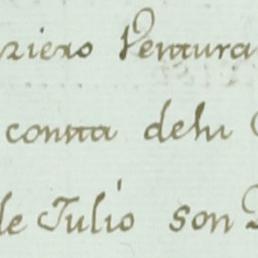 riero Ventura
consta dehu
de Julio son